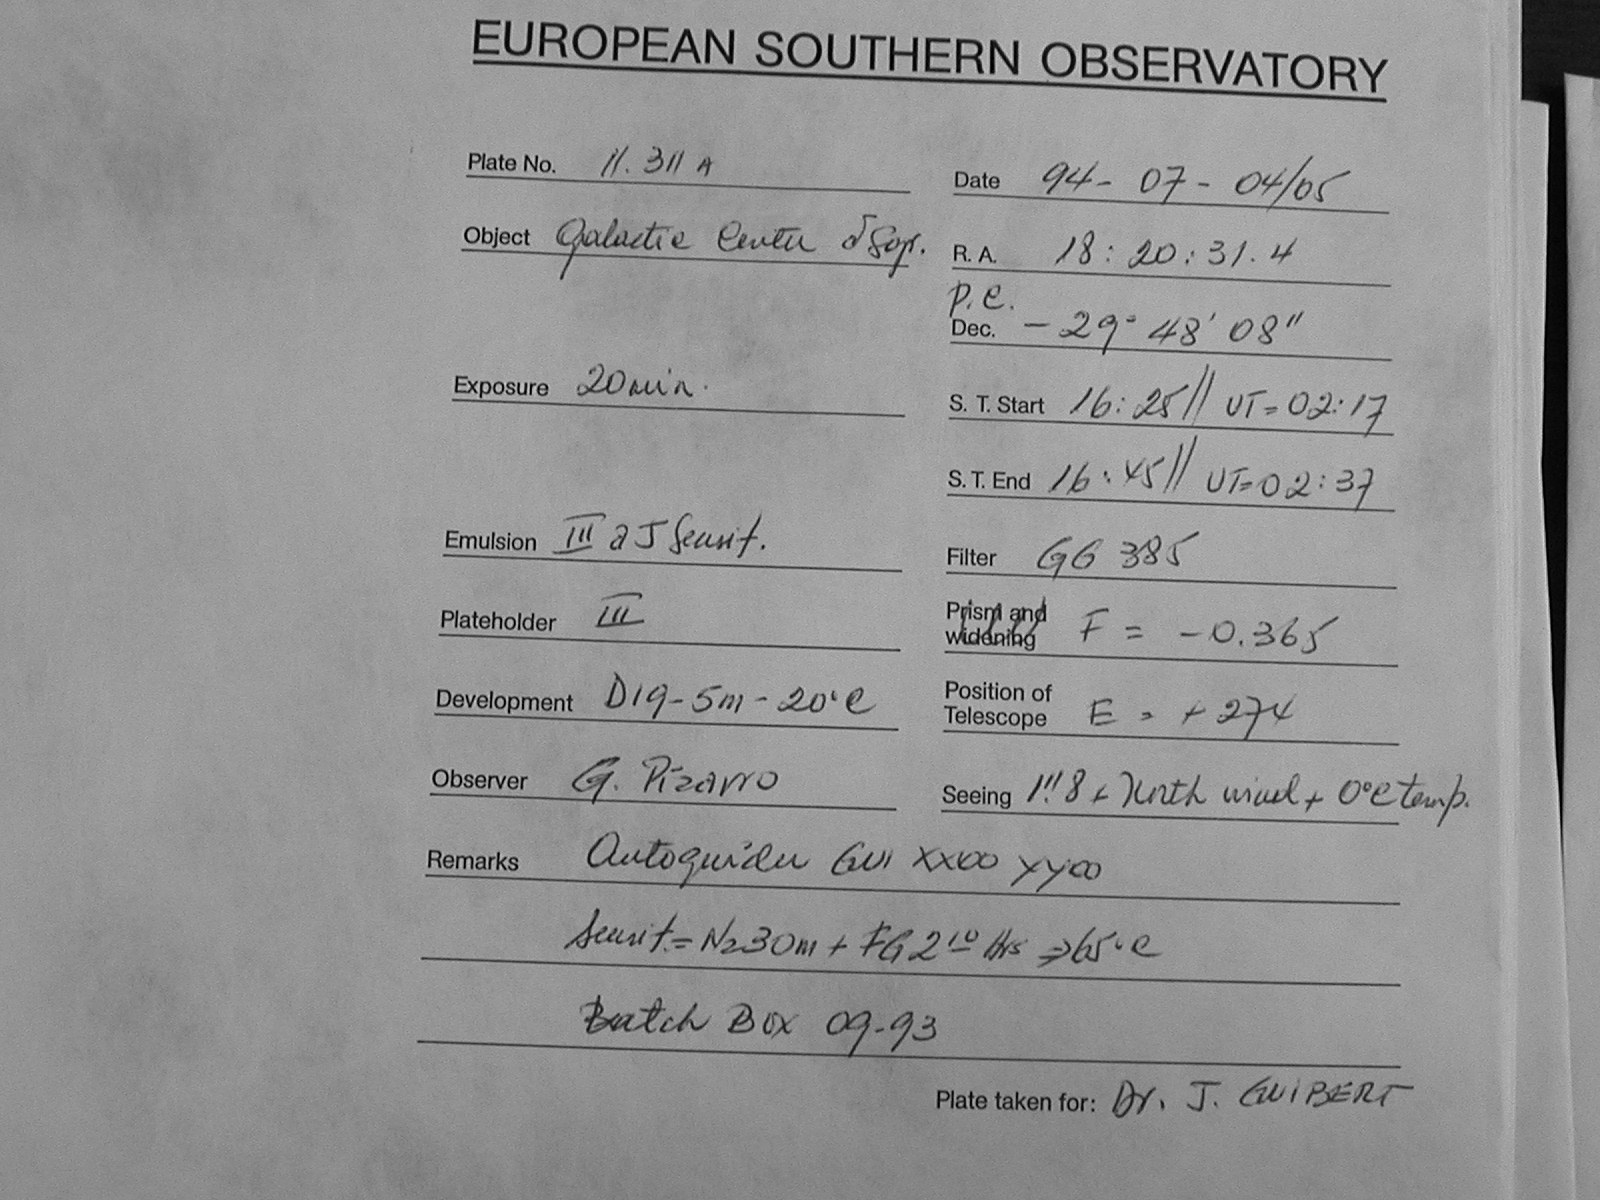 EUROPEAN SOUTHERN OBSERVATORY
Plate No. 11.311 A
Date 94-07-04/05
Object Galactic Center
R. A. 18:20:31.4
P.C.
Dec. -29° 48' 08"
Exposure 20 min.
S. T. Start 16:25 // UT=02:17
S. T. End 16:45 // UT=02:37
Emulsion III a J Sensit.
Filter GG 385
Plateholder III
Prism and widening F = -0.365
Development D19-5m-20°C
Position of Telescope E = +274
Observer G. Pizarro
Seeing 1"8 + North wind + 0°C temp.
Remarks Autoguider GUI XX00 YY00
Sensit.=N2 30m + FG 2 10 Hrs ⇒ 65°C
Batch Box 09-93
Plate taken for: Dr. J. GUIBERT